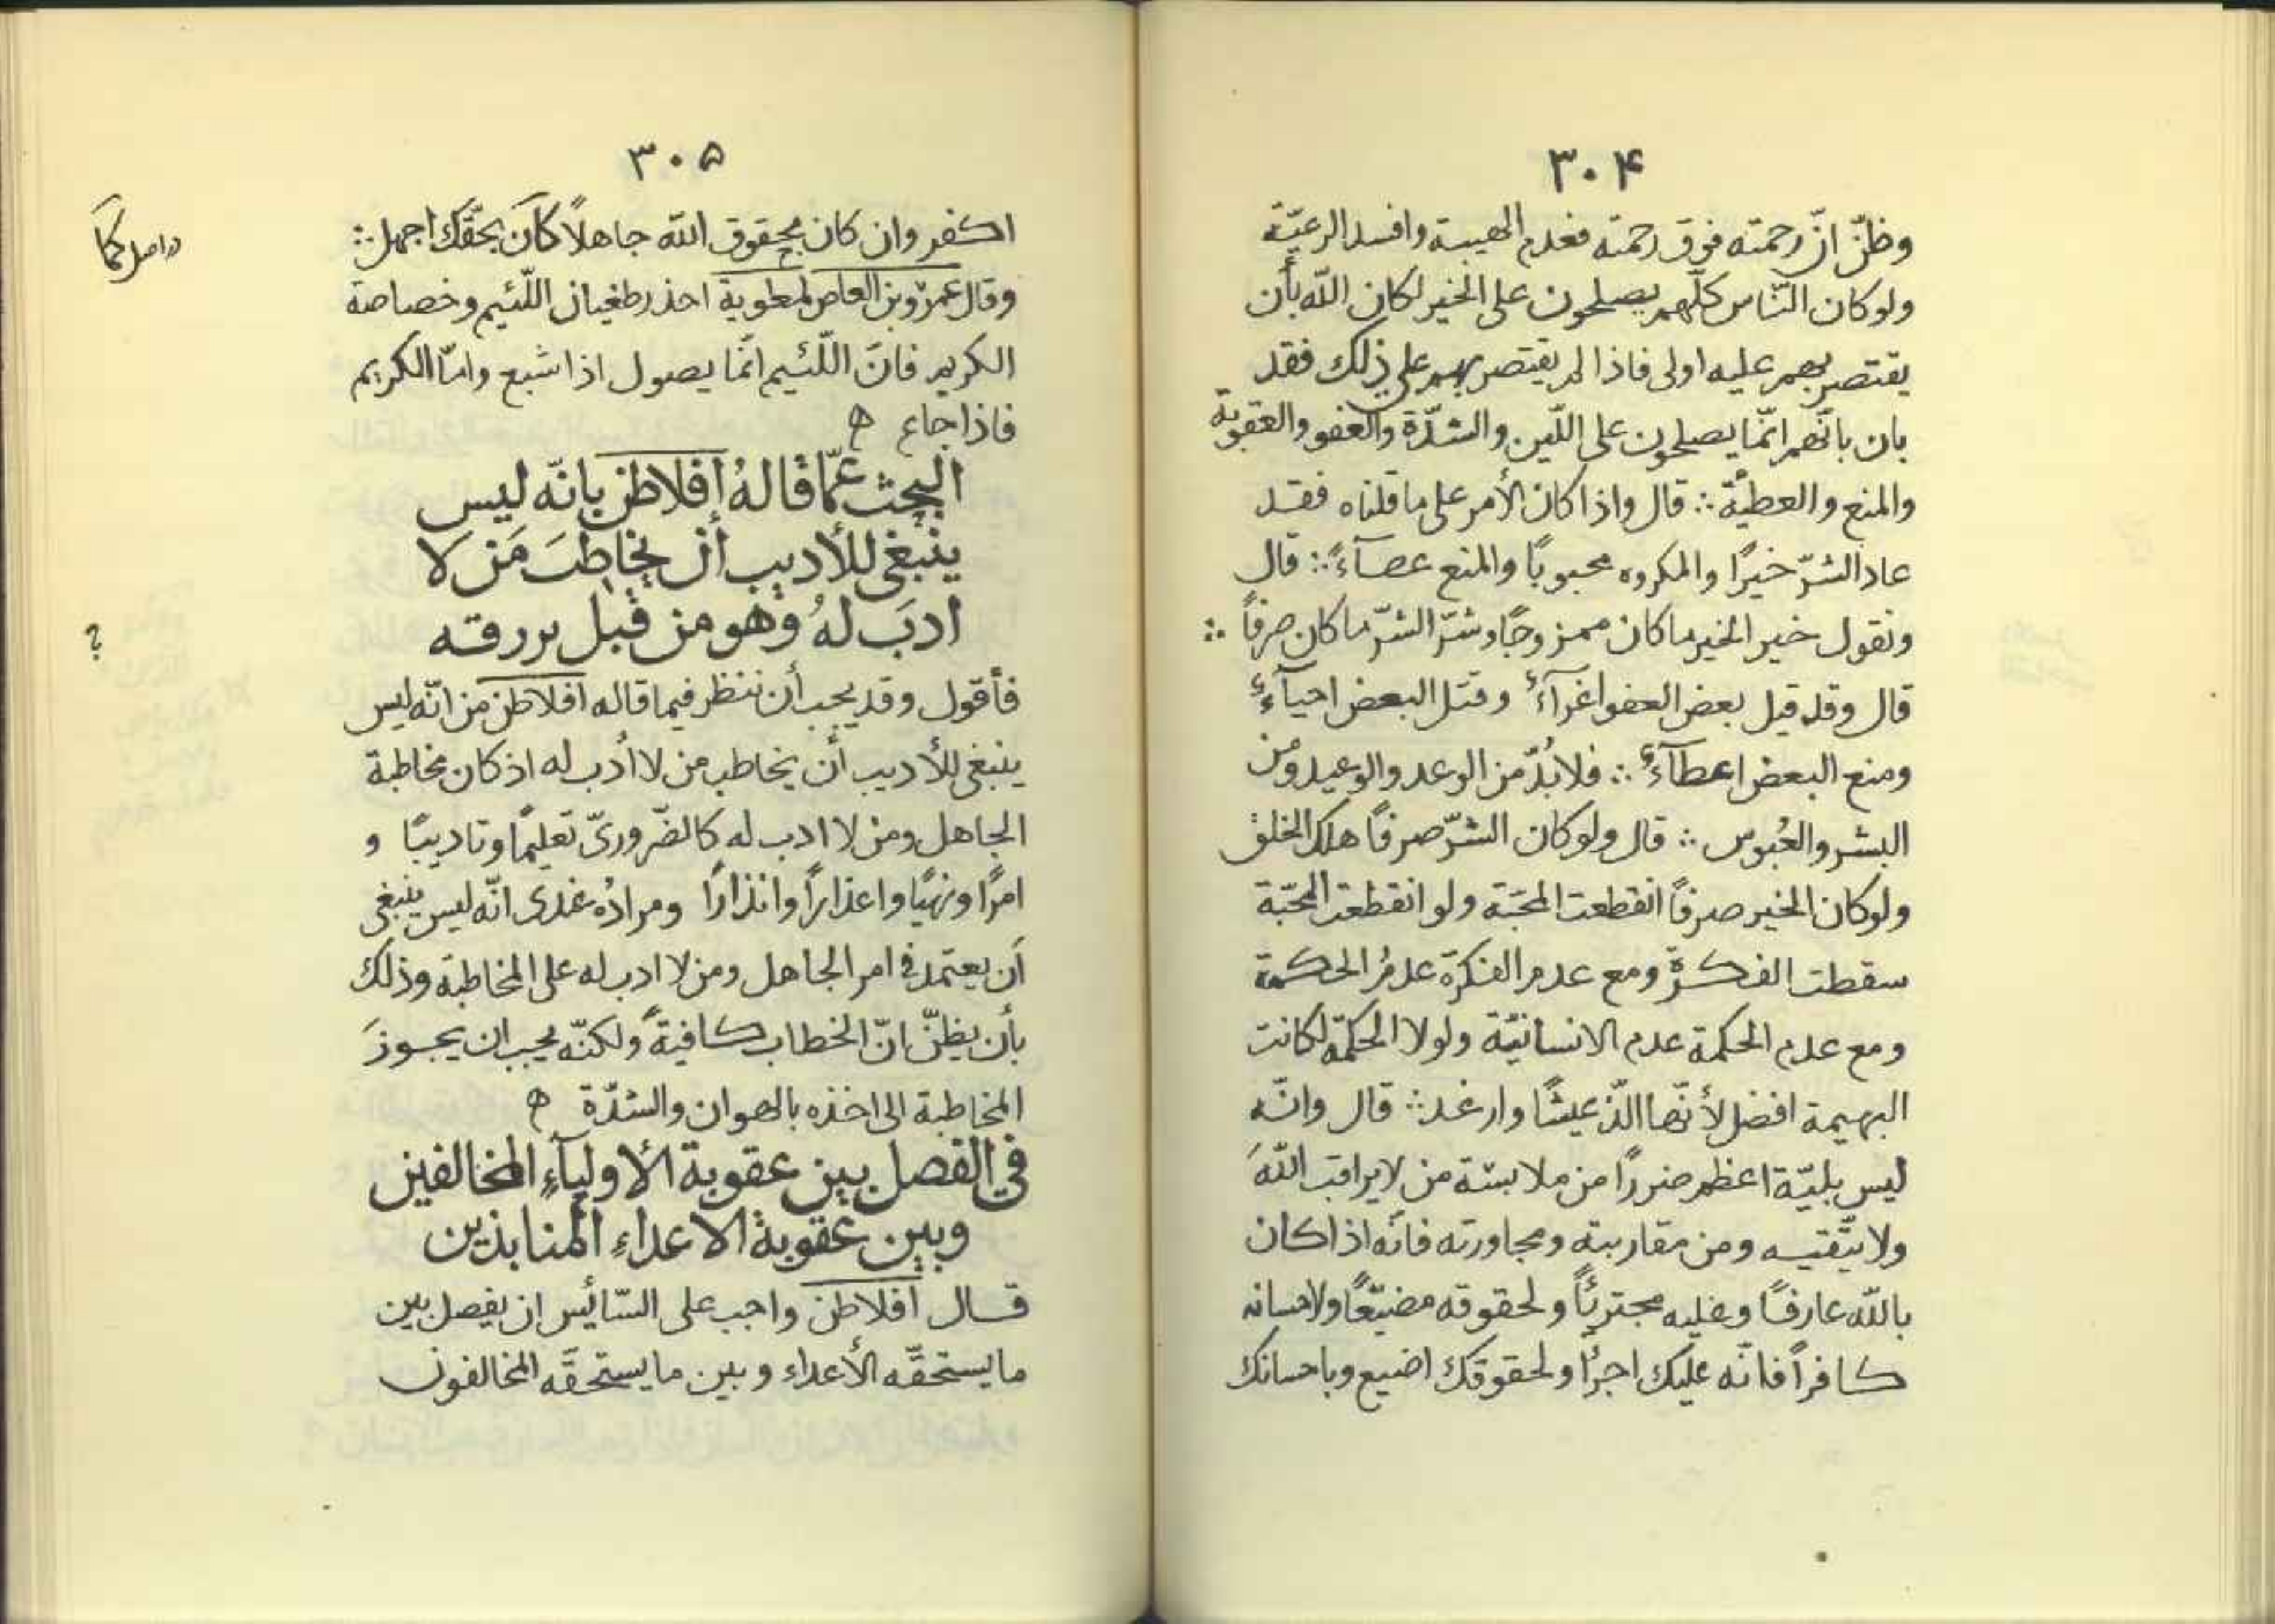 ۳۰۴
وظنّ انّ رحمته فوق رحمته فعدم الهيبة وافسد الرعيّة
ولو كان النّاس كلّهم يصلحون على الخير لكان اللّه بأن
يقتصر بهم عليه اولى فاذا لم يقتصر بهم على ذلك فقد
بان بانّهم انّما يصلحون على اللّين والشدّة والعفو والعقوبة
والمنع والعطيّة ∴ قال واذا كان الأمر على ما قلناه فقد
عاد الشرّ خيرًا والمكروه محبوبًا والمنع عصآءً ∴ قال
ونقول خير الخير ما كان ممزوجًا وشرّ الشرّ ما كان صرفاً ∴
قال وقد قيل بعض العفو اغرآءٌ وقتل البعض احيآءٌ
ومنع البعض اعطآءٌ ∴ فلا بُدّ من الوعد والوعيد ومن
البشر والعُبوس ∴ قال ولو كان الشرّ صرفاً هلك الخلق
ولو كان الخير صرفاً انقطعت المحبّة ولو انقطعت المحبّة
سقطت الفكرة ومع عدم الفكرة عدمُ الحكمة
ومع عدم الحكمة عدم الانسانيّة ولولا الحكمة لكانت
البهيمة افضل لأنّها الذّ عيشًا وارغد ∴ قال وانّه
ليس بليّة اعظم ضررًا من ملابسة من لا يراقب اللّهَ
ولا يتّقيه ومن مقاربته ومجاورته فانّه اذا كان
باللّه عارفًا وعليه مجترئًا ولحقوقه مضيّعًا ولاحسانه
كافراً فانّه عليك اجرأ ولحقوقك اضيع وباحسانك
۳۰۵
اكفر وان كان بحقوق اللّه جاهلًا كان بحقّك اجهل ∴
وقال عمرو بن العاص لمعوية احذر طغيان اللّئيم وخصاصة
الكريم فانّ اللّئيم انّما يصول اذا شبع وامّا الكريم
فاذا جاع ه
البحث عمّا قالهُ افلاطن بانّه ليس
ينبغى للأديب أن يخاطبَ مَن لا
ادبَ لهُ وهو من قبل
فأقول وقد يجب أن ننظر فيما قاله افلاطن من انّه ليس
ينبغى للأديب أن يخاطب من لا أدب له اذ كان مخاطبة
الجاهل ومن لا ادب له كالضّرورىّ تعليمًا وتاديبًا و
امرًا ونهيًا واعذاراً وانذارًا ومرادُه عندى انّه ليس ينبغى
أن يعتمد فى امر الجاهل ومن لا ادب له على المخاطبة وذلك
بأن يظنّ انّ الخطاب كافيةً ولكنّه يجب ان يجوزَ
المخاطبة الى اخذه بالهوان والشدّة ه
فى الفصل بين عقوبة الأوليآءِ المخالفين
وبين عقوبة الاعداء المنابذين
قال افلاطن واجب على السّائس ان يفصل بين
ما يستحقّه الأعداء وبين ما يستحقّه المخالفون
دراصل كما
؟